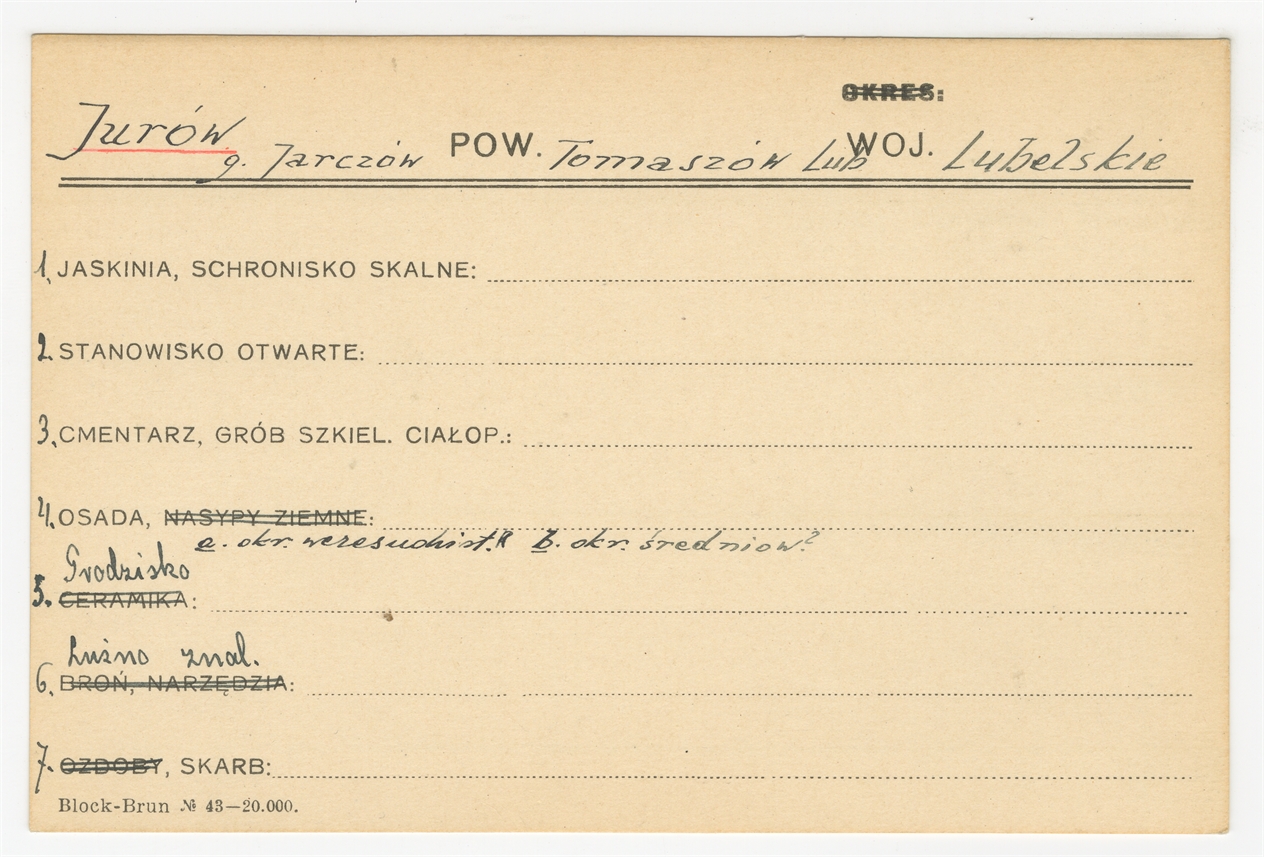 OKRES:
Jurów
g. Jarczów POW. Tomaszów Lub WOJ. Lubelskie
1. JASKINIA, SCHRONISKO SKALNE:
2. STANOWISKO OTWARTE:
3. CMENTARZ, GRÓB SZKIEL. CIAŁOP.:
4. OSADA, NASYPY ZIEMNE:
a. okr. wczesnohist.? b. okr. średniow.?
Grodzisko
5. CERAMIKA:
Luźno znal.
6. BROŃ, NARZĘDZIA:
7. OZDOBY, SKARB:
Block-Brun № 43—20.000.